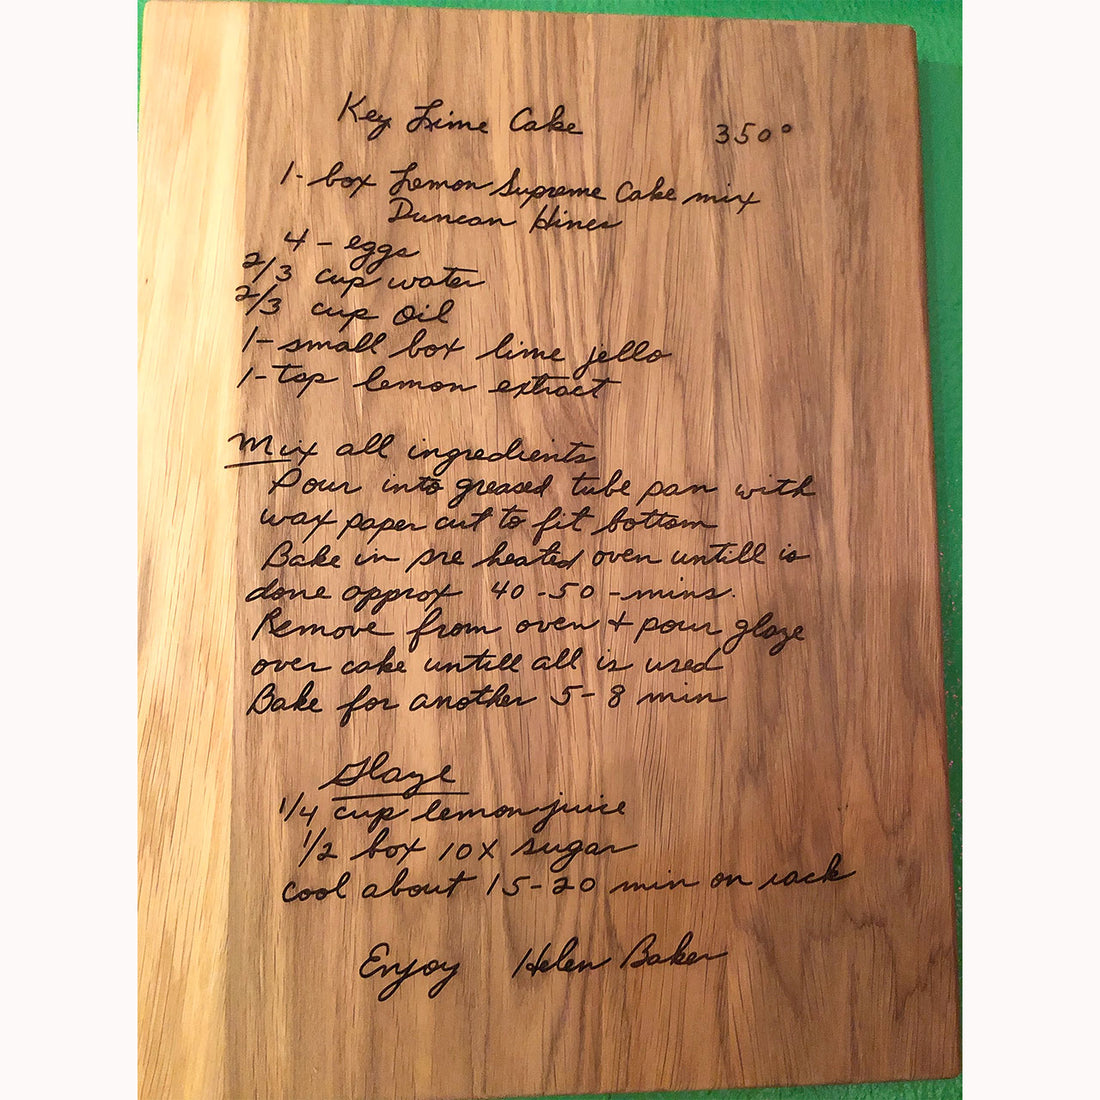 Key Lime Cake 350°
1- box Lemon Supreme Cake mix
Duncan Hines
4 - eggs
2/3 cup water
2/3 cup oil
1- small box lime jello
1- tsp lemon extract
Mix all ingredients
Pour into greased tube pan with
wax paper cut to fit bottom
Bake in pre heated oven untill is
done approx 40-50-mins.
Remove from oven + pour glaze
over cake untill all is used
Bake for another 5-8 min
Glaze
1/4 cup lemon juice
1/2 box 10X sugar
cool about 15-20 min on rack
Enjoy Helen Baker